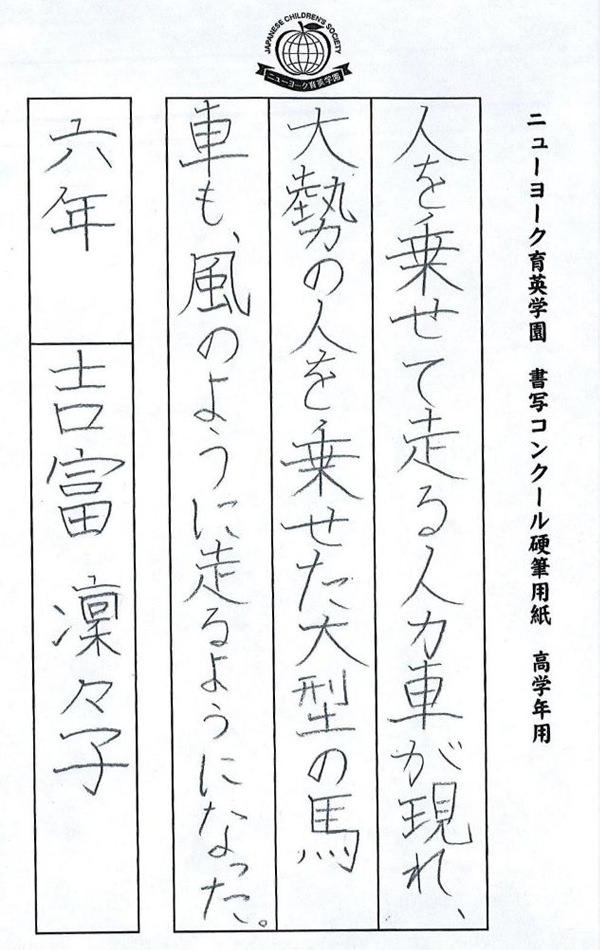 JAPANESE CHILDREN'S SOCIETY
ニューヨーク育英学園
ニューヨーク育英学園　書写コンクール硬筆用紙　高学年用
人を乗せて走る人力車が現れ、
大勢の人を乗せた大型の馬
車も、風のように走るようになった。
六年　吉富　凜々子